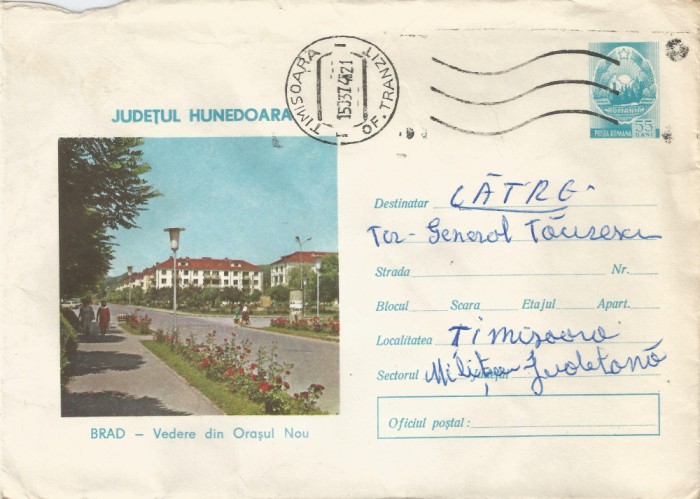 JUDEȚUL HUNEDOARA
BRAD – Vedere din Orașul Nou
TIMIȘOARA
OF. TRANZIT
15.33.74.21
ROMANIA
POSTA ROMANA 55 BANI
Destinatar CĂTRE-
General
Strada Nr.
Blocul Scara Etajul Apart.
Localitatea Timișoara
Sectorul Miliția Județană
Oficiul poștal: